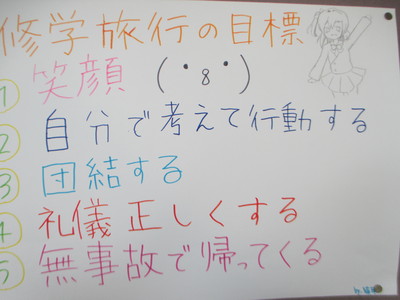 修学旅行の目標
① 笑顔 ( ・ 8 ・ )
② 自分で考えて行動する
③ 団結する
④ 礼儀正しくする
⑤ 無事故で帰ってくる